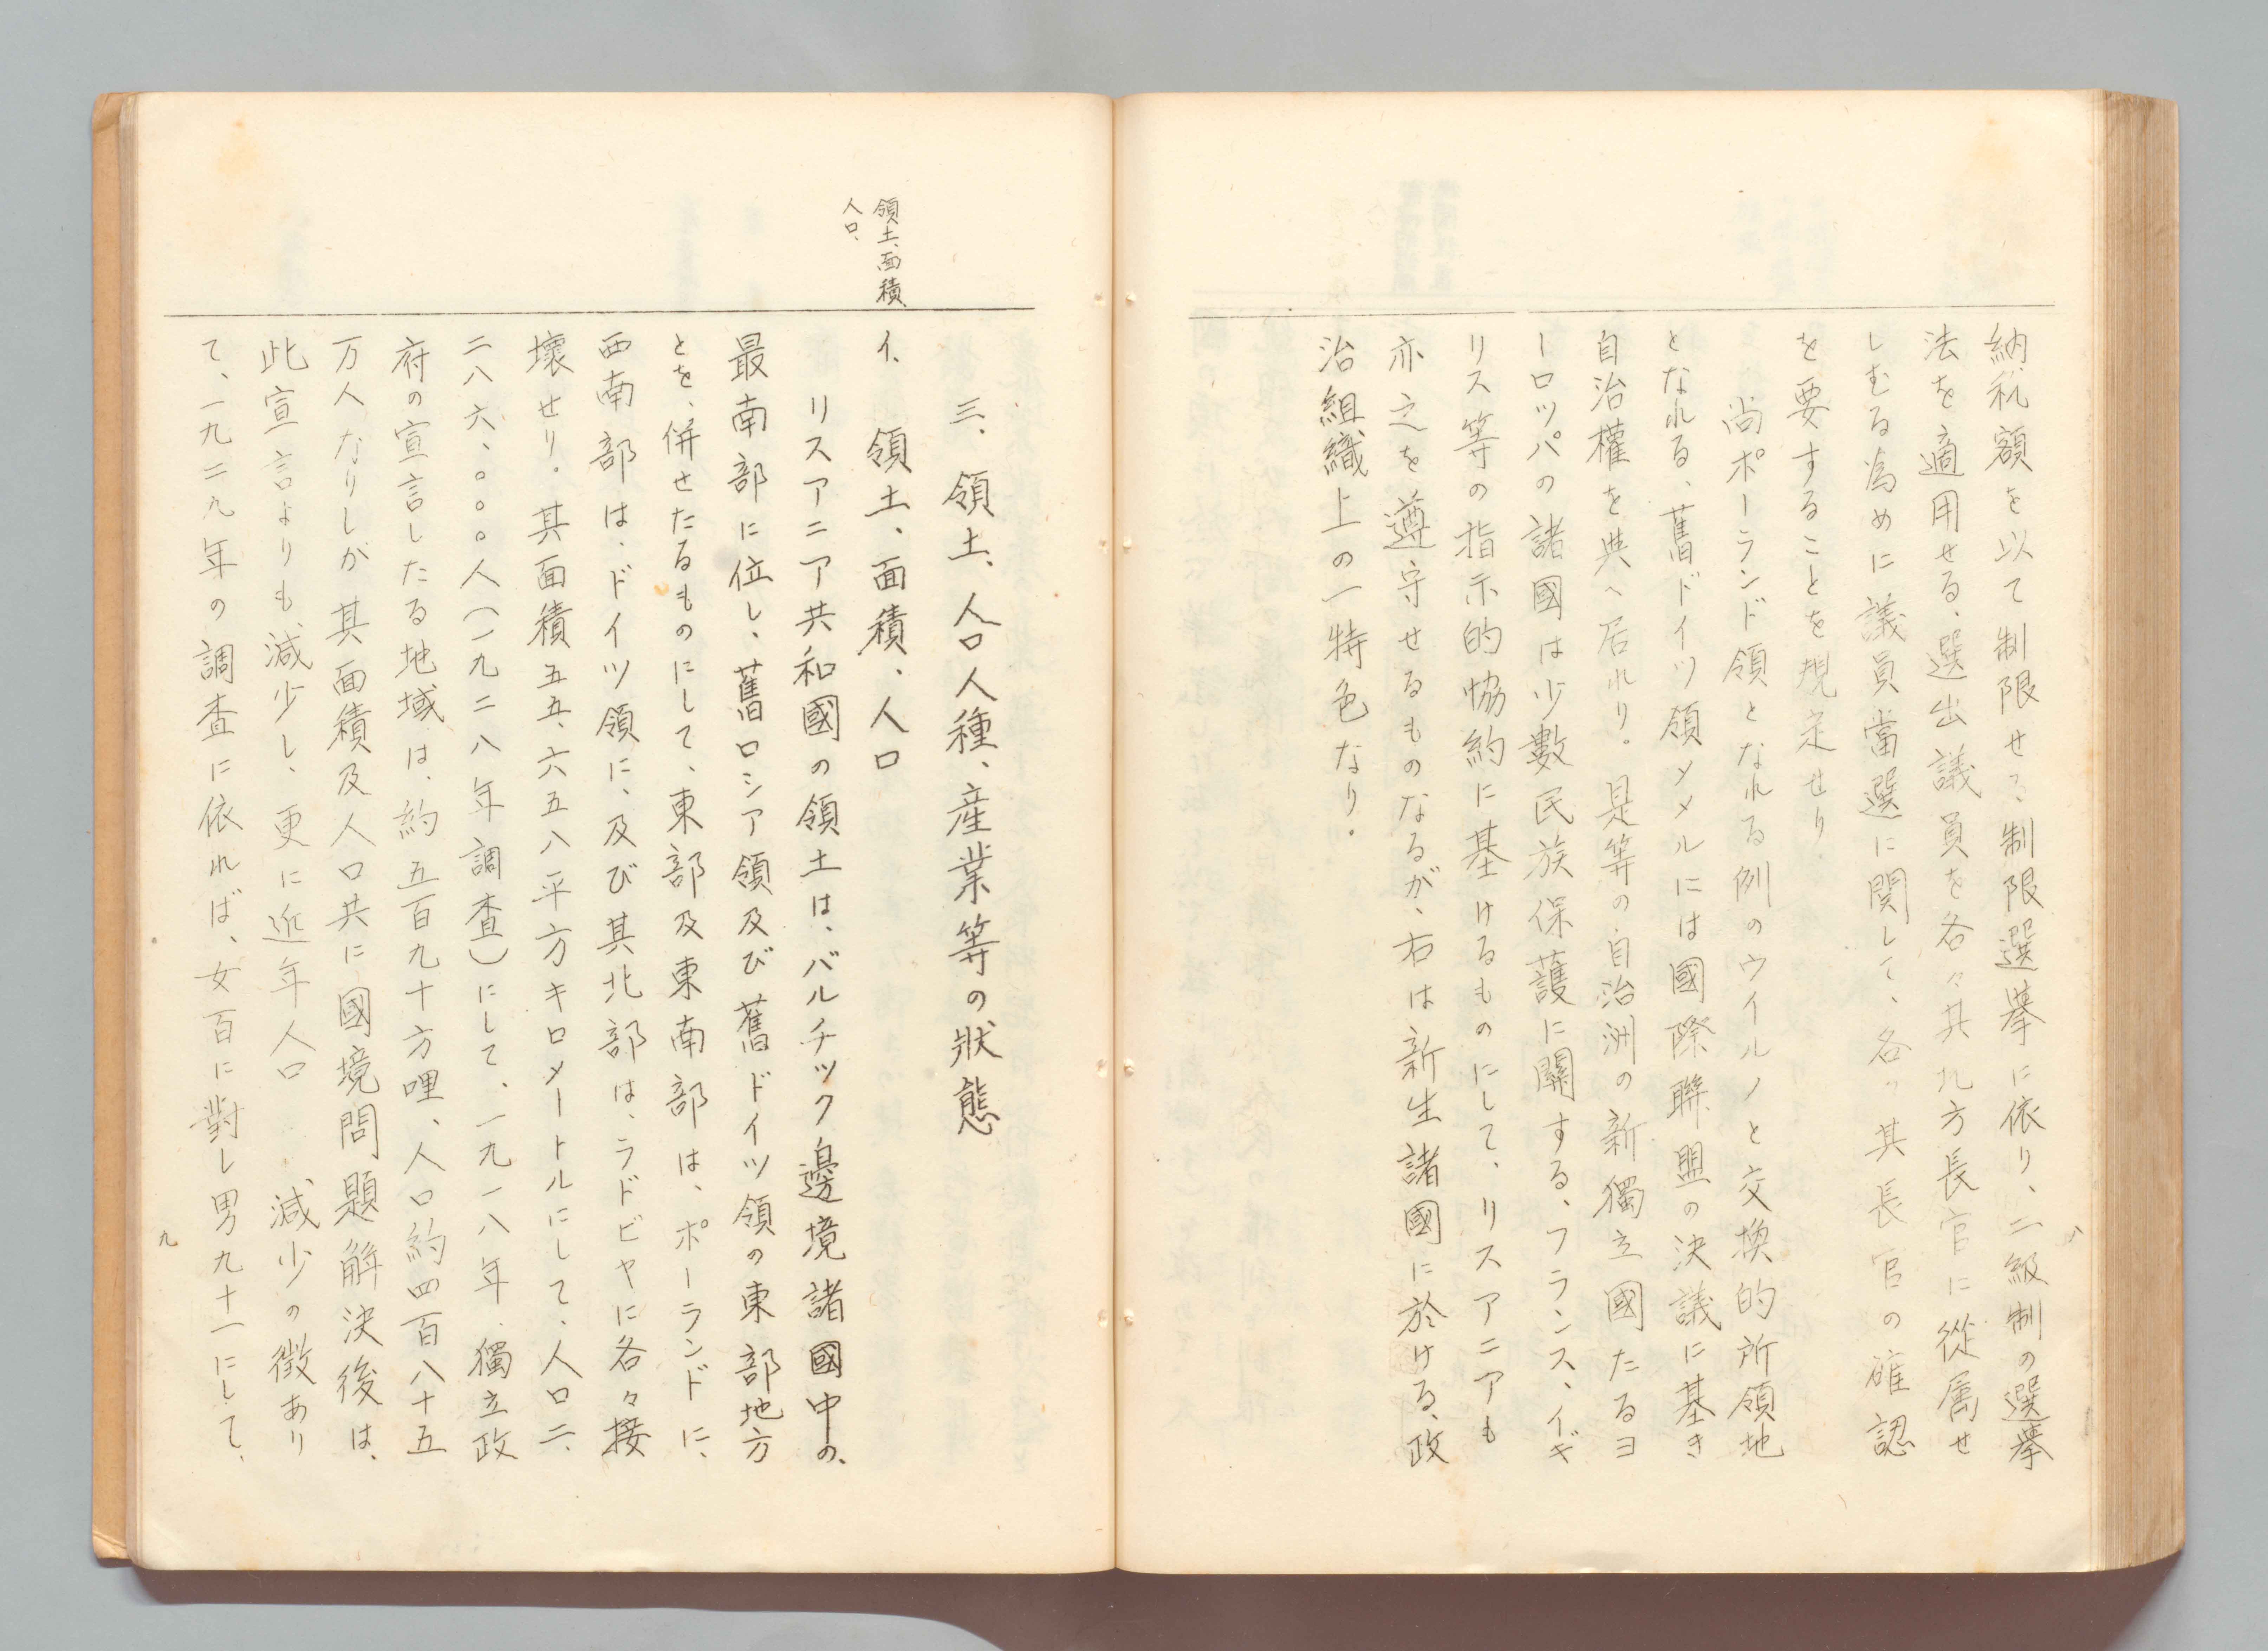 納税額を以て制限せる、制限選挙に依り、二級制の選挙
法を適用せる、選出議員を各々其九方長官に從属せ
しむる為めに議員當選に関して、各々其長官の確認
を要することを規定せり。
尚ポーランド領となれる例のウイルノと交換的所領地
となれる、舊ドイツ領メメルには國際聯盟の決議に基き
自治權を典へ居れり。是等の自治洲の新獨立國たるヨ
ーロツパの諸國は少數民族保護に關する、フランス、イギ
リス等の指示的協約に基けるものにして、リスアニアも
亦之を遵守せるものなるが、右は新生諸國に於ける、政
治組織上の一特色なり。
八
領土、面積、
人口、
三、領土、人口人種、産業等の狀態
イ、領土、面積、人口
リスアニア共和國の領土は、バルチック邊境諸國中の、
最南部に位し、舊ロシア領及び舊ドイツ領の東部地方
とを、併せたるものにして、東部及東南部は、ポーランドに、
西南部は、ドイツ領に、及び其北部は、ラドビヤに各々接
壞せり。其面積五五、六五八平方キロメートルにして、人口二、
二八六、〇〇〇人(一九二八年調査)にして、一九一八年、獨立政
府の宣言したる地域は、約五百九十方哩、人口約四百八十五
万人なりしが其面積及人口共に國境問題解決後は、
此宣言よりも減少し、更に近年人口減少の徴あり
て、一九二九年の調査に依れば、女百に對し男九十一にして、
九